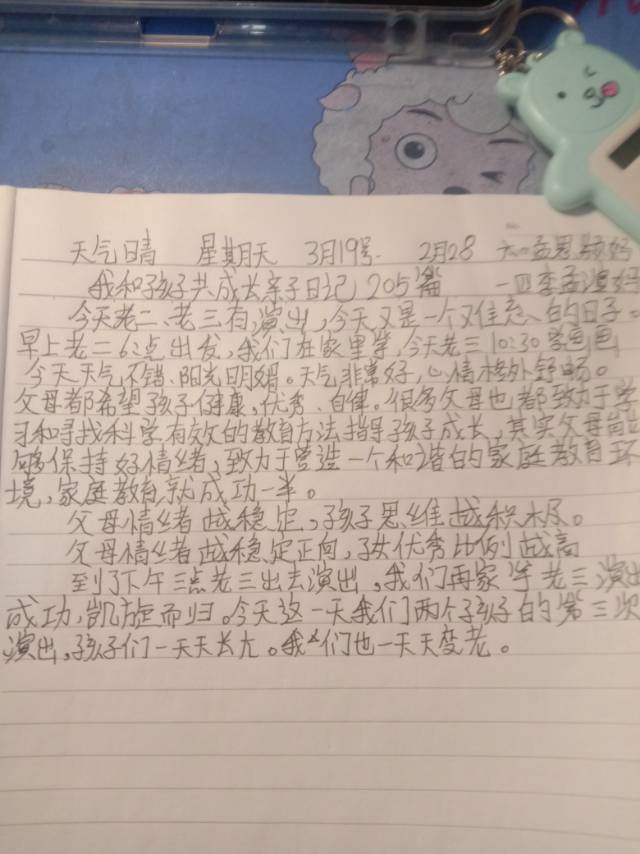 天气晴 星期天 3月19号. 2月28 六一孟思颖妈
我和孩子共成长亲子日记205篇 一四李孟滢妈
今天老二、老三有演出,今天又是一个双佳的日子。
早上老二6:点出发,我们在家里等,今天老三10:30学画画
今天天气不错、阳光明媚。天气非常好,心情格外舒畅。
父母都希望孩子健康、优秀、自律。很多父母也都致力于学
习和寻找科学有效的教育方法指导孩子成长,其实父母能
够保持好情绪,致力于营造一个和谐的家庭教育环
境,家庭教育就成功一半。
父母情绪越稳定,孩子思维越积极。
父母情绪越稳定正向,子女优秀比例越高
到了下午三点老三出去演出,我们再家等老三演出
成功,凯旋而归。今天这一天我们两个孩子的第三次
演出,孩子们一天天长大。我们也一天天变老。